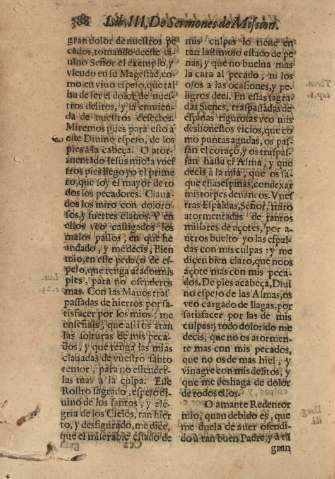 388 Lib. III. De Sermones de Mission.
gran dolor de nuestros pe
cados, tomando deste di
uino Señor el exemplo, y
viendo en su Magestad, co-
mo en viuo espejo, que tal
ha de ser el dolor, de nues-
tros delitos, y la enmien-
da de nuestros defectos.
Miremos pues para esto à
este Diuino espejo, de los
pies a la cabeça. O ator-
mentado Iesus mio! a vues
tros pies llego yo el prime
ro, que soy el mayor de to
dos los pecadores. Claua-
dos los miro con doloro-
sos, y fuertes clauos. Y en
ellos veo castigados los
malos passos, en que he
andado, y me dezis, Bien
mio, en este pedaço de es-
pejo, que tenga atados mis
pies, para no ofenderos
mas. Con las Manos tras
passadas de hierros por sa-
tisfacer por los mios, me
enseñais, que assi os atan
las solturas de mis peca-
dos, y que tenga las mias
clauadas de vuestro santo
temor, para no estender-
las mas a la culpa. Esse
Rostro sagrado, espejo di-
uino de los santos, y ale-
gria de los Cielos, tan hie-
rto, y desfigurado, me dize,
que el miserable estado de
mis culpas lo tiene en
tan lastimoso estado de pe
nas, y que no buelua mas
la cara al pecado, ni los
ojos a las ocasiones, y pe
ligros del. En essas sagra
das Sienes, traspassadas de
espinas rigurosas veo mis
deshonestos vicios, que co
mo puntas agudas, os pas-
san el coraçon, y os traspas-
san hasta el Alma, y que
decis a la mia, que os sa-
que essas espinas, con dexar
mis torpes deuaneos. Vues
tras Espaldas, Señor, miro
atormentadas de tantos
millares de açotes, por a-
ueros buelto yo las espal-
das con mis culpas: y me
dicen bien claro, que no os
açote mas con mis peca-
dos. De pies a cabeça, Diui
no espejo de las Almas, os
veo cargado de llagas, por
satisfacer por las de mis
culpas: y todo dolorido me
decis, que no os atormen-
te mas con mis pecados,
que no os de mas hiel, y
vinagre con mis delitos, y
que me deshaga de dolor
de todos ellos.
O amante Redentor
mio, quan debido es, que
me duela de auer ofendi-
do à tan buen Padre, y à tã
gran